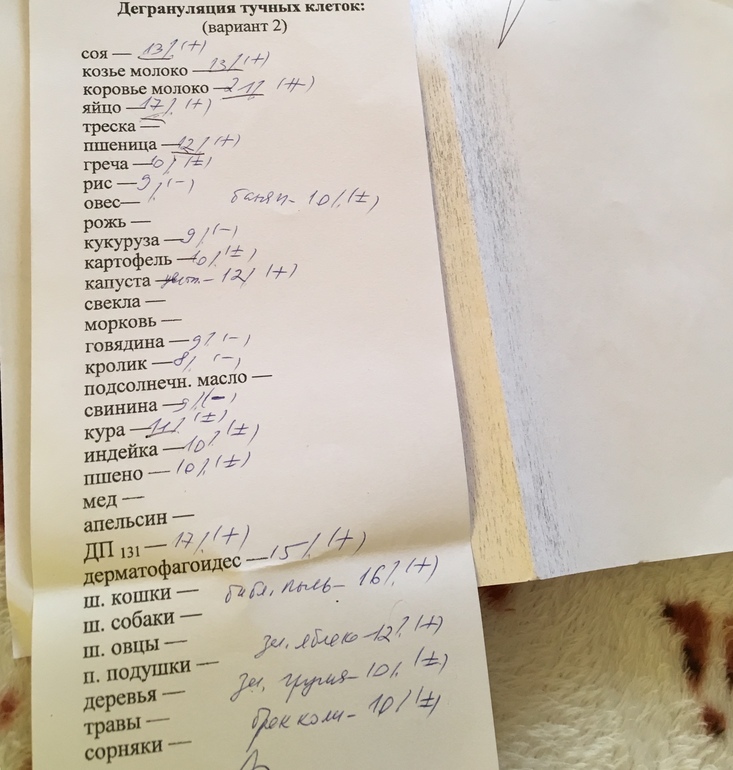 Дегрануляция тучных клеток:
(вариант 2)
соя — 13% (+)
козье молоко — 13% (+)
коровье молоко — 21% (++)
яйцо — 17% (+)
треска —
пшеница — 12% (+)
греча — 10% (±)
рис — 9% (-)
овес — банан - 10% (±)
рожь —
кукуруза — 9% (-)
картофель — 10% (±)
капуста — цветн. - 12% (+)
свекла —
морковь —
говядина — 9% (-)
кролик — 8% (-)
подсолнечн. масло —
свинина — 9% (-)
кура — 11% (±)
индейка — 10% (±)
пшено — 10% (±)
мед —
апельсин —
ДП 131 — 17% (+)
дерматофагоидес — 15% (+)
ш. кошки — библ. пыль - 16% (+)
ш. собаки —
ш. овцы — зел. яблоко - 12% (+)
п. подушки —
деревья — зел. груша - 10% (±)
травы — брокколи - 10% (±)
сорняки —